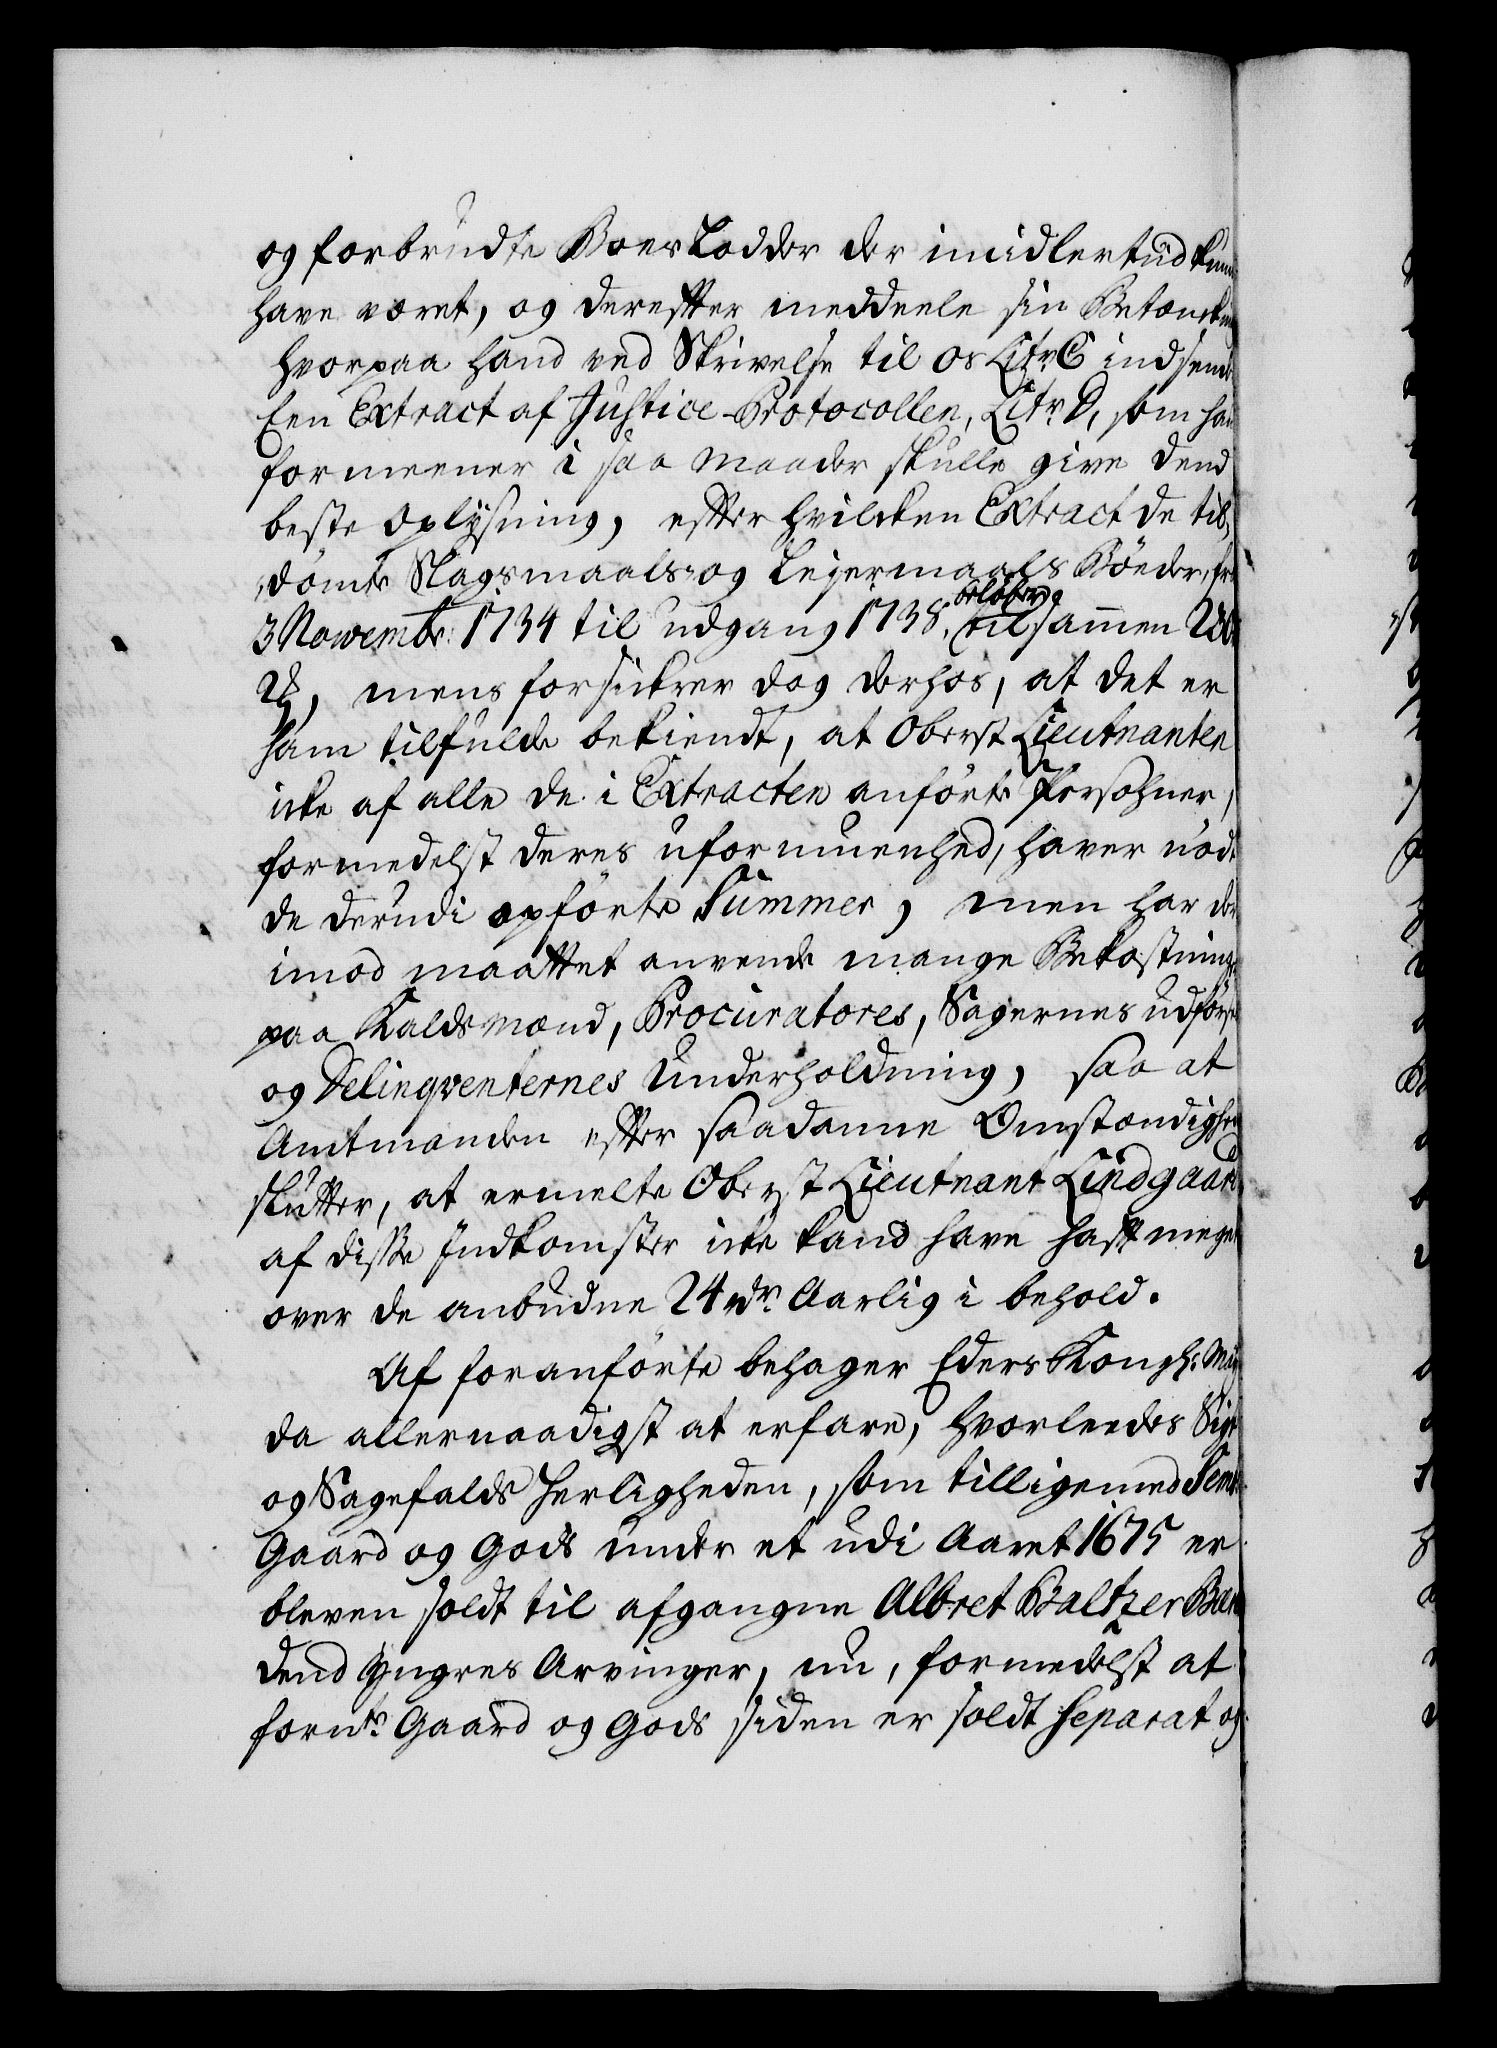 og forbrudte Boes Lodder der imidlertiid kunde
have været, og derefter meddeele sin Betænkning
hvorpaa hand ved Skrivelse til os Litr. C indsendte
Een Extract af Justice-Protocollen, Litr. D, som han
formeener i saa maader skulle give dend
beste Oplysning, efter hvilcken Extract de til,
,dømte Slagsmaals- og Leyermaals Bøeder, fra
3 Novembr: 1734 til udgang 1738. beløber sig
tilsammen
rdr, mens forsikrer dog derhos, at det er
ham tilfulde bekiendt, at Oberst Lieutnanten
icke af alle de i Extracten anførte Persohner,
formedelst deres uformuenhed, haver nødt
de derudi opførte Summer, men har der
imod maattet anvende mange Bekostninger
paa Kaldsmænd, Procuratores, Sagernes udførsel
og Delinqventernes Underholdning, saa at
Amtmanden efter saadanne Omstændigheder
slutter, at ermelte Oberst Lieutnant Lindgaard
af disse Indkomster icke kand have haft meget
over de anbudne 24 rdr. Aarlig i behold.
Af foranførte behager Eders Kongl: May
da allernaadigst at erfare, hvorleedes Sigt
og Sagefalds Herligheden, som tilligemed
Gaard og Gods under et udi Aaret 1675 er
bleven soldt til afgangne Albret Baltzer
dend Yngres Arvinger, nu, formedelst at
fornte. Gaard og Gods siden er soldt separat og